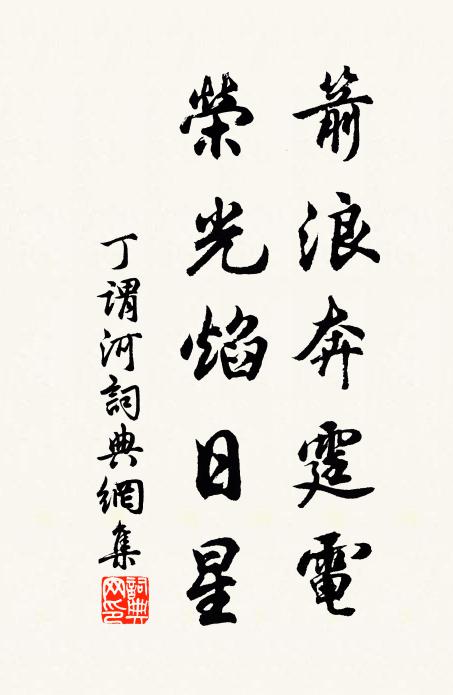 箭浪奔霆電
榮光焰日星
丁謂河詞典網集
詞典網印